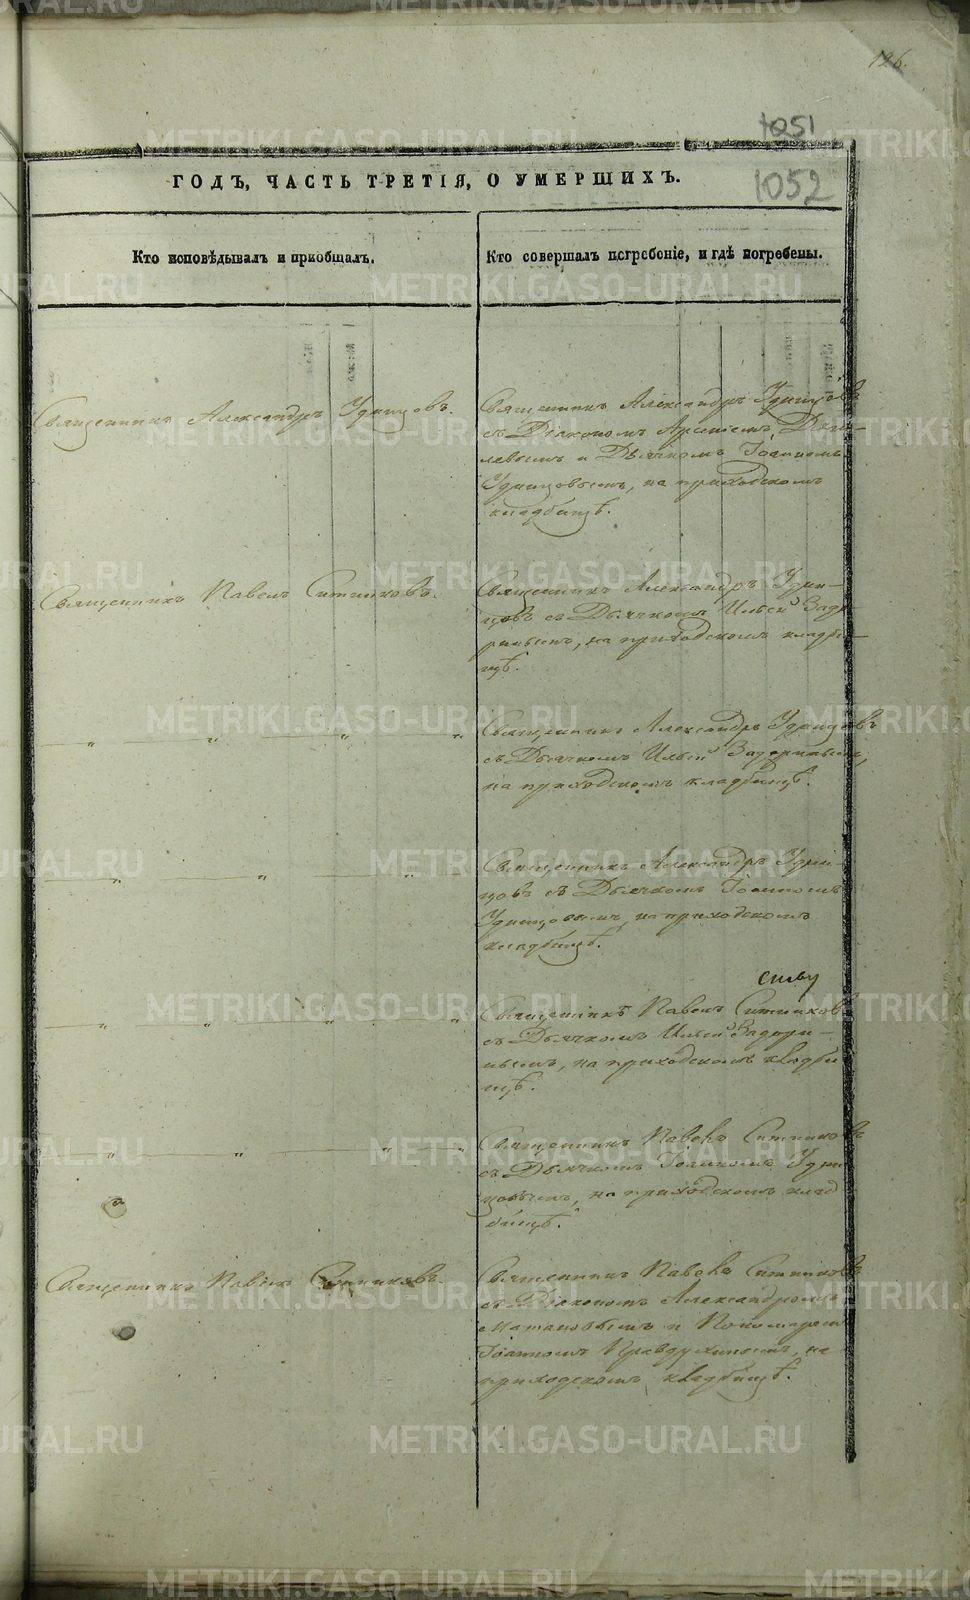 126.
1051
1052
ГОДЪ, ЧАСТЬ ТРЕТІЯ, О УМЕРШИХЪ.
Кто исповѣдывалъ и пріобщалъ.
Кто совершалъ погребеніе, и гдѣ погребены.
Священникъ Александръ Удинцовъ.
Священникъ Александръ Удинцовъ
съ Діакономъ Арсеніемъ
и Дьячкомъ Іоанномъ
Удинцовымъ, на приходскомъ
кладбищѣ.
Священникъ Павелъ Ситниковъ.
Священникъ Александръ Удин-
цовъ съ Дьячкомъ Ильей Задо-
ринымъ, на приходскомъ кладби-
щѣ.
" " " "
Священникъ Александръ Удинцовъ
съ Дьячкомъ Ильей Задоринымъ,
на приходскомъ кладбищѣ.
" " "
Священникъ Александръ Удин-
цовъ съ Дьячкомъ Іоанномъ
Удинцовымъ, на приходскомъ
кладбищѣ.
" " " "
Священникъ Павелъ Ситниковъ
съ Дьячкомъ Ильей Задори-
нымъ, на приходскомъ кладби
щѣ.
" " " "
Священникъ Павелъ Ситниковъ
съ Дьячкомъ Іоанномъ Удин
цовымъ, на приходскомъ клад
бищѣ.
Священникъ Павелъ Ситниковъ.
Священникъ Павелъ Ситниковъ
съ Діакономъ Александромъ
и Пономаремъ
Іоанномъ Правдухинымъ, на
приходскомъ кладбищѣ.
METRIKI.GASO-URAL.RU